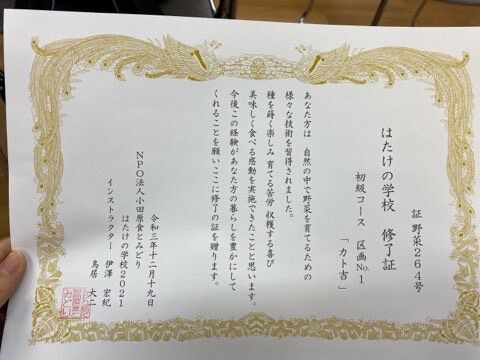 証 野菜264号
はたけの学校 修了証
初級コース 区画No.1
「カト吉」
あなた方は 自然の中で野菜を育てるための
様々な技術を習得されました。
種を蒔く楽しみ 育てる苦労 収穫する喜び
美味しく食べる感動を実施できたことと思います。
今後この経験があなた方の暮らしを豊かにして
くれることを願いここに修了の証を贈ります。
令和三年十二月十九日
NPO法人小田原食とみどり
はたけの学校2021
インストラクター 伊澤 宏紀
鳥居 大二